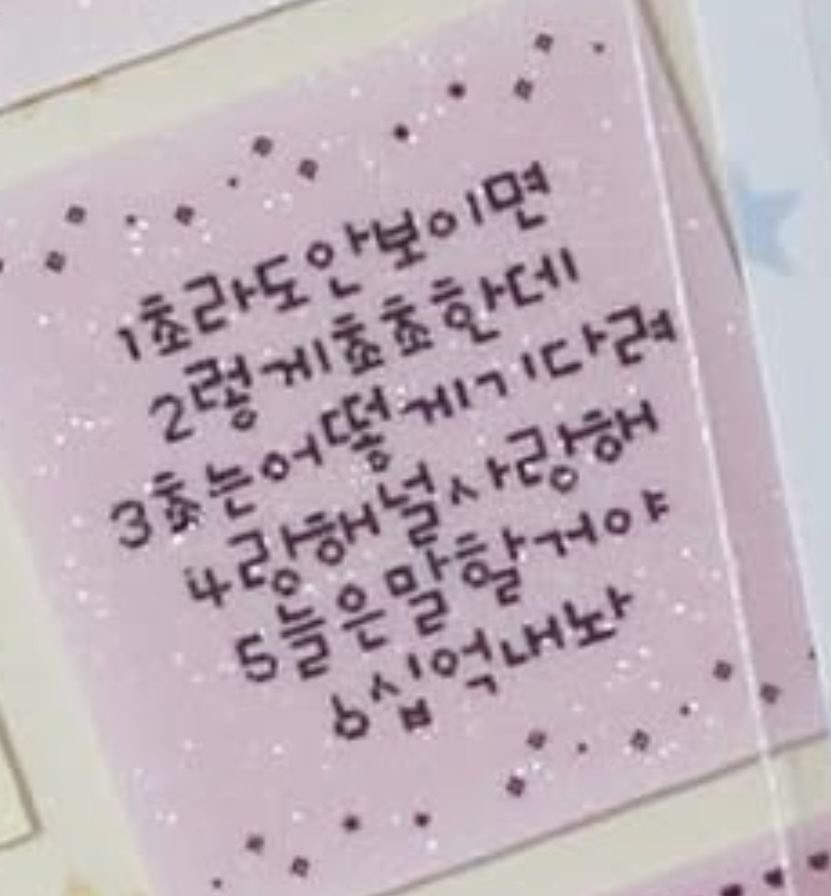 1초라도안보이면
2렇게초초한데
3초는어떻게기다려
4랑해널사랑해
5늘은말할거야
6십억내놔